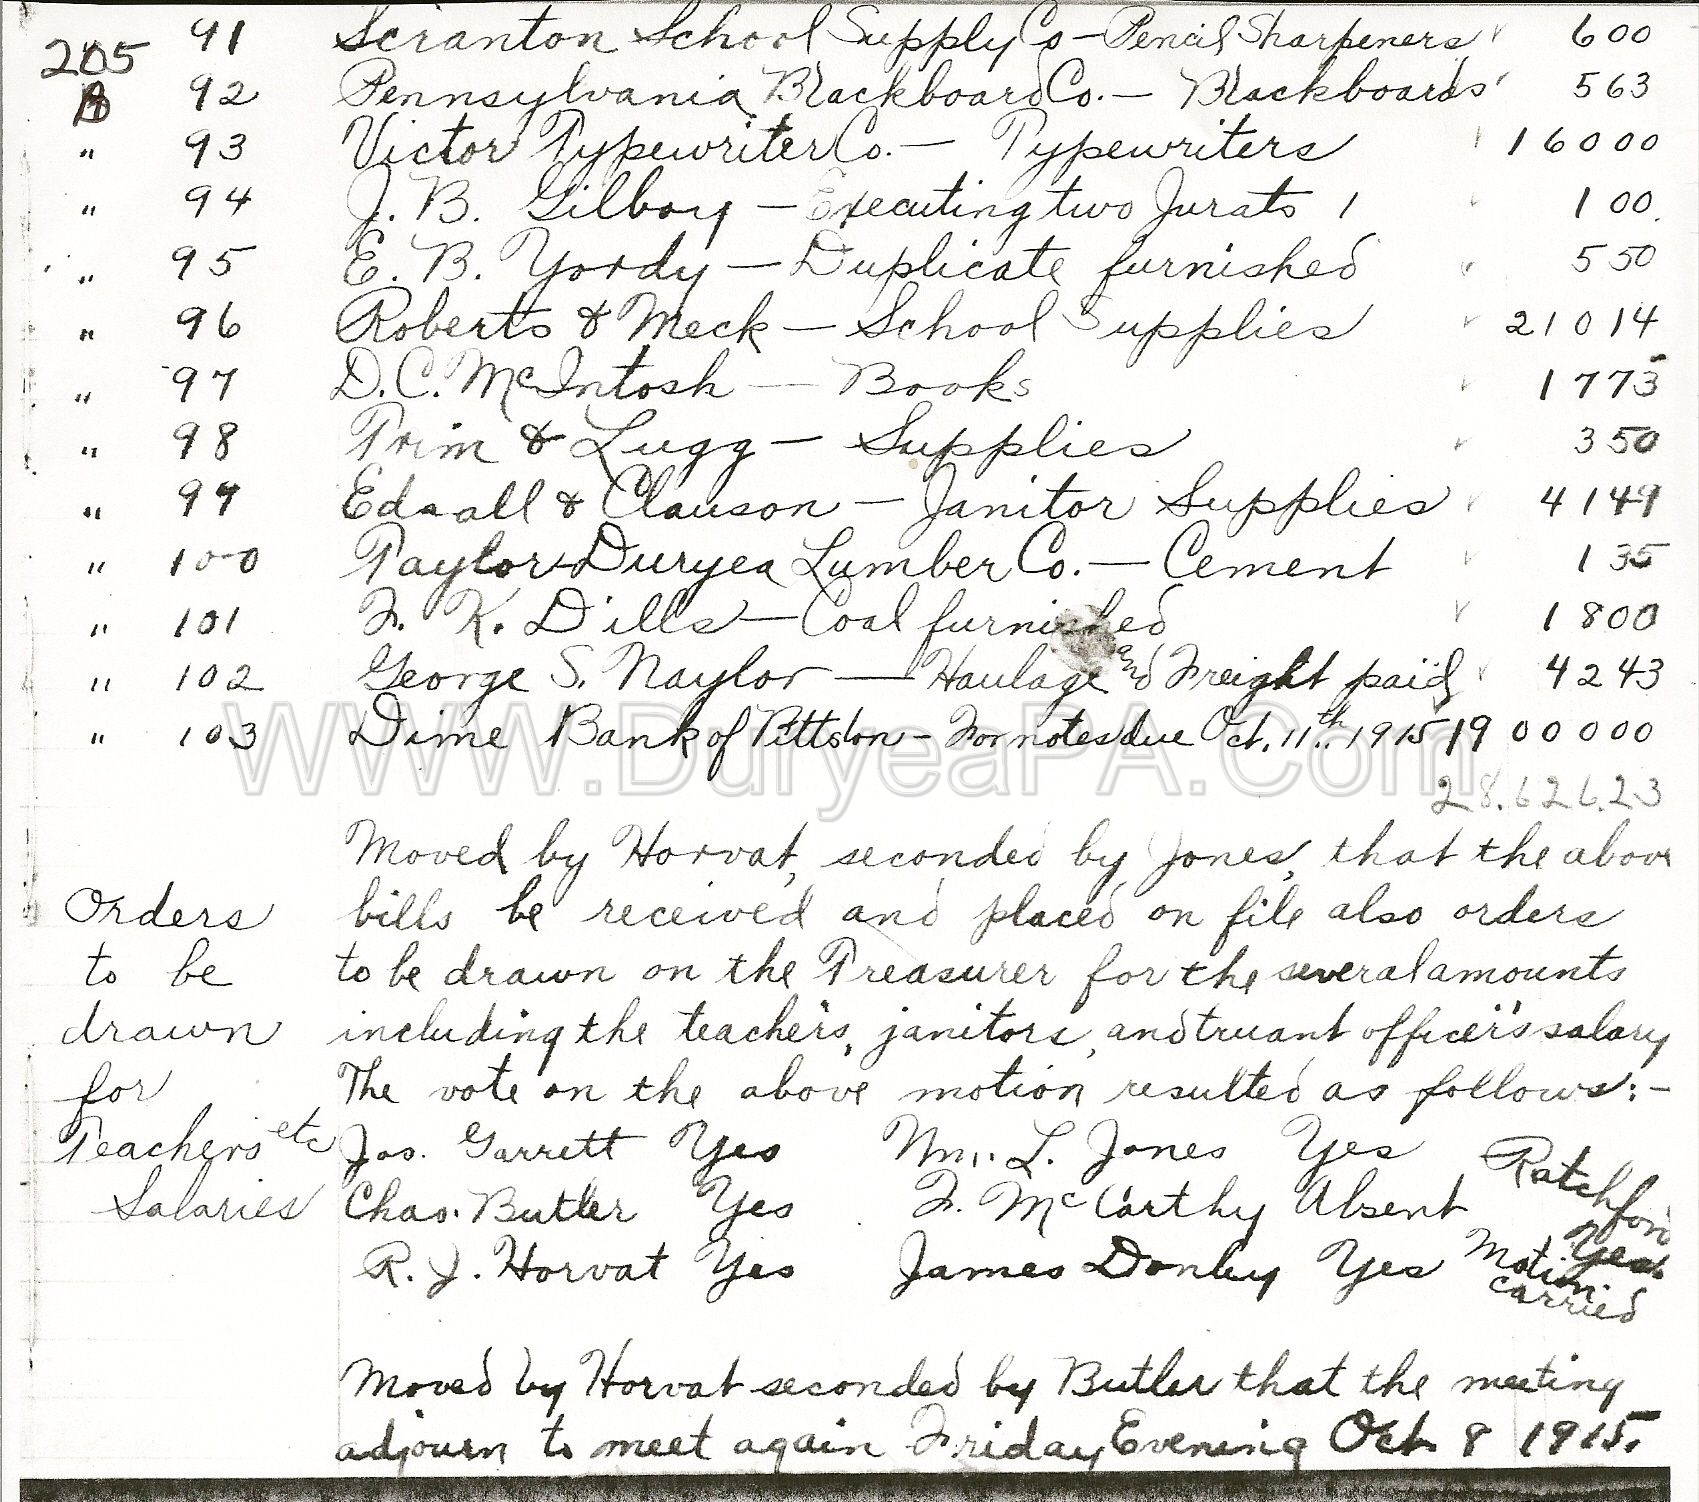 205 91 Scranton School Supply Co - Pencil Sharpeners 600
A 92 Pennsylvania Blackboard Co. - Blackboards 563
" 93 Victor Typewriter Co. - Typewriters 16000
" 94 J. B. Gilboy - Executing two Jurats 100.
" 95 E. B. Yordy - Duplicate furnished 550
" 96 Roberts & Meck - School Supplies 21014
" 97 D.C. McIntosh - Books 1773
" 98 Trim & Lugg - Supplies 350
" 99 Edsall & Clauson - Janitor Supplies 4149
" 100 Taylor-Duryea Lumber Co. - Cement 135
" 101 F. K. Dills - Coal furnished 1800
" 102 George S. Naylor - Haulage and Freight paid 4243
" 103 Dime Bank of Pittston - For notes due Oct. 11th. 1915 1900000
WWW.DuryeaPA.Com
28.626.23
Moved by Horvat, seconded by Jones, that the above
Orders bills be received and placed on file also orders
to be to be drawn on the Treasurer for the several amounts
drawn including the teacher's, janitors, and truant officer's salary
for The vote on the above motion resulted as follows:-
Teachers etc Jas. Garrett Yes Wm. L. Jones Yes Ratchford
Salaries Chas. Butler Yes F. McCarthy Absent Yes
R. J. Horvat Yes James Donley Yes Motion
carried
Moved by Horvat seconded by Butler that the meeting
adjourn to meet again Friday Evening Oct 8 1915.